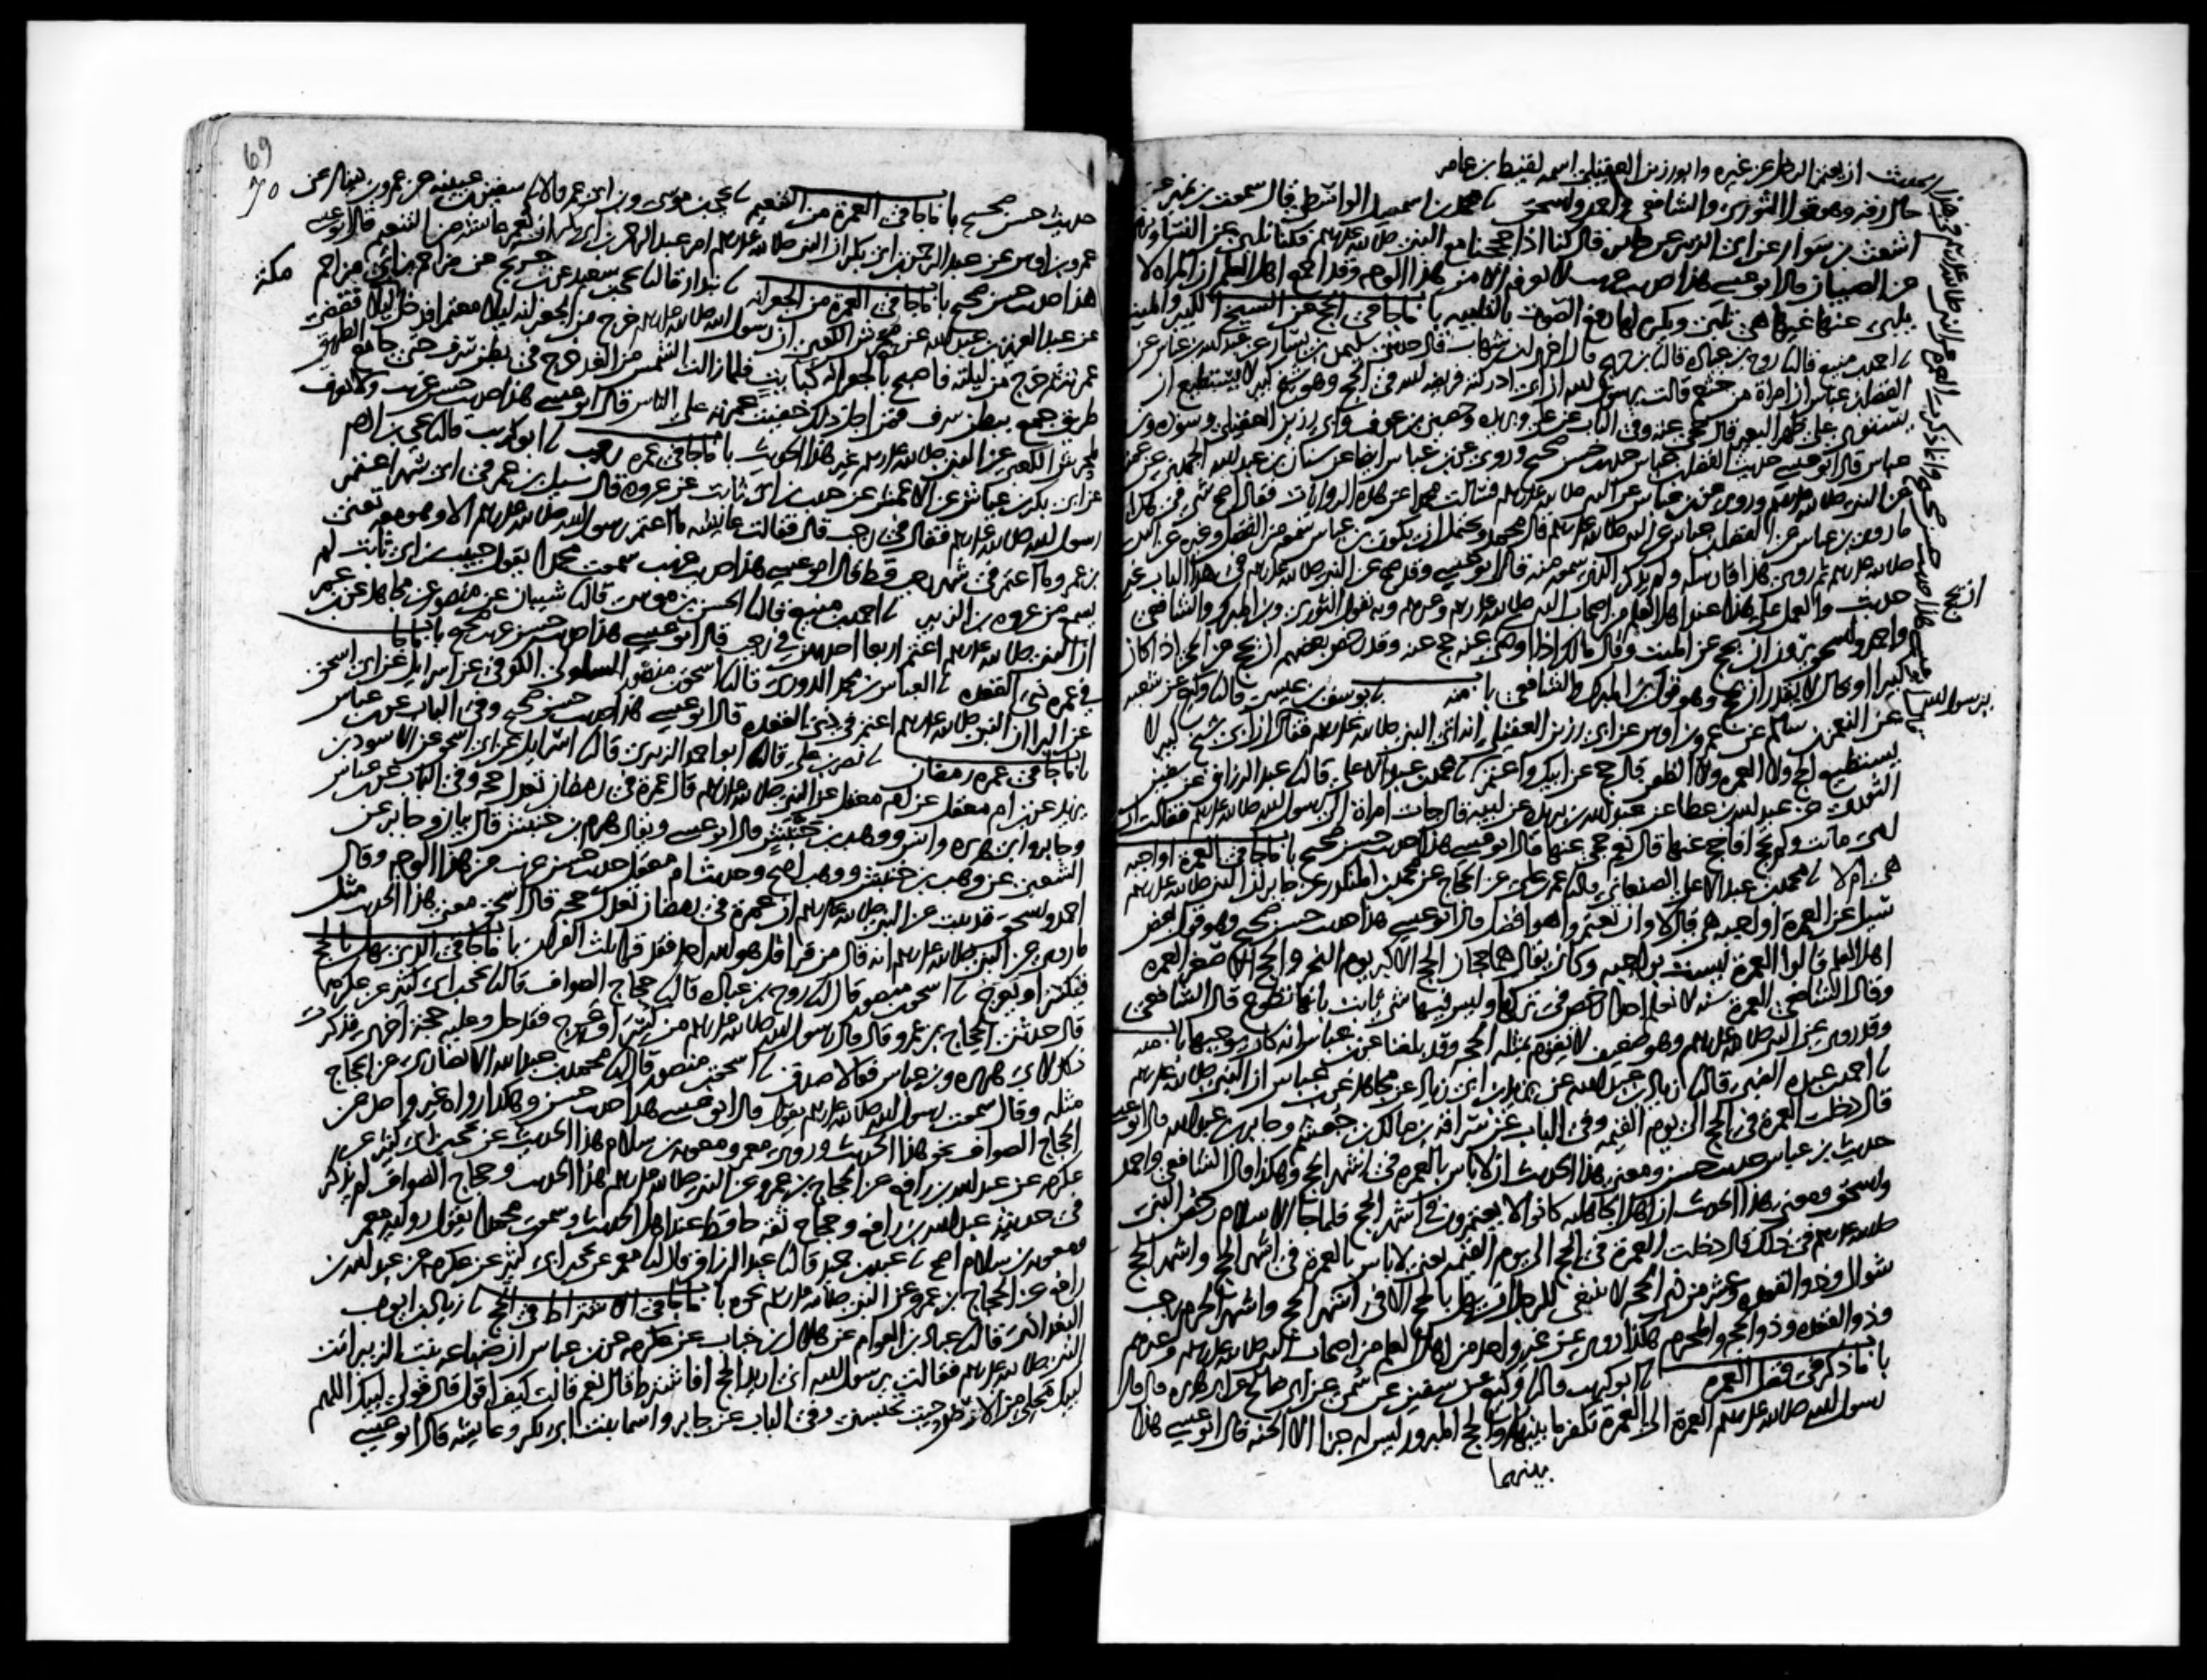 الحديث ان يعتمر الرجل عن غيره وابو رزين العقيلي اسمه لقيط بن عامر
حلال رفقه وهو قول الثوري والشافعي واحمد واسحق ثنا محمد بن اسمعيل الواسطي قال سمعت بن نمير عن
اشعث بن سوار عن ابي الزبير عن جابر قال كنا اذا حججنا مع النبي صلى الله عليه وسلم فكنا نلبي عن النساء ونرمي
عن الصبيان قال ابو عيسى هذا حديث غريب لا نعرفه الا من هذا الوجه وقد اجمع اهل العلم ان المراه لا
يلبي عنها غيرها هي تلبي ويكره لها رفع الصوت بالتلبيه باب ما جا في الحج عن الشيخ الكبير والميت
ثنا احمد بن منيع قال ثنا روح بن عباده قال ثنا بن جريج قال اخبرني بن شهاب قال حدثني سليمن بن يسار عن عبد الله بن عباس عن
الفضل بن عباس ان امراة من خثعم قالت يرسول الله ان ابي ادركته فريضه الله في الحج وهو شيخ كبير لا يستطيع ان
يستوي على ظهر البعير قال حجي عنه وفي الباب عن علي وبريده وحصين بن عوف وابي رزين العقيلي وسوده وبن
عباس قال ابو عيسى حديث الفضل بن عباس حديث حسن صحيح وروي عن بن عباس ايضا عن سنان بن عبد الله الجهني عن عمته
عن النبي صلى الله عليه وسلم وروي عن بن عباس عن النبي صلى الله عليه وسلم فسالت محمدا عن هذه الروايات فقال اصح شي في هذا
ما روى بن عباس عن الفضل بن عباس عن النبي صلى الله عليه وسلم قال محمد ويحتمل ان يكون بن عباس سمعه من الفضل وغيره عن النبي
صلى الله عليه وسلم ثم روى هذا فارسله ولم يذكر الذي سمعه منه قال ابو عيسى وقد صح عن النبي صلى الله عليه وسلم في هذا الباب غير
حديث والعمل على هذا عند اهل العلم من اصحاب النبي صلى الله عليه وسلم وغيرهم وبه يقول الثوري وبن المبرك والشافعي
واحمد واسحق يرون ان يحج عن الميت وقال مالك اذا اوصى ان يحج عنه حج عنه وقد رخص بعضهم ان يحج عن الحي اذا كان
كبيرا او بحال لا يقدر ان يحج وهو قول بن المبرك والشافعي باب منه ثنا يوسف بن عيسى قال ثنا وكيع عن شعبه
عن النعمن بن سالم عن عمرو بن اوس عن ابي رزين العقيلي انه اتى النبي صلى الله عليه وسلم فقال ان ابي شيخ كبير لا
يستطيع الحج ولا العمره ولا الظعن قال حج عن ابيك واعتمر ثنا محمد بن عبد الاعلى قال ثنا عبد الرزاق عن سفين
الثوري عن عبد الله بن عطا عن عبد الله بن بريده عن ابيه قال جات امراة الى رسول الله صلى الله عليه وسلم فقالت ان
امي ماتت ولم تحج افاحج عنها قال نعم حجي عنها قال ابو عيسى هذا حديث حسن صحيح باب ما جا في العمرة اواجبه
هي ام لا ثنا محمد بن عبد الاعلى الصنعاني قال ثنا عمر بن علي عن الحجاج عن محمد بن المنكدر عن جابر ان النبي صلى الله عليه وسلم
سيل عن العمرة اواجبه هي قال لا وان تعتمروا هو افضل قال ابو عيسى هذا حديث حسن صحيح وهو قول بعض
اهل العلم قالوا العمرة ليست بواجبه وكان يقال هما حجان الحج الاكبر يوم النحر والحج الاصغر العمره
وقال الشافعي العمرة سنه لا نعلم احدا رخص في تركها وليس فيها شي ثابت بانها تطوع قال الشافعي
وقد روي عن النبي صلى الله عليه وسلم وهو ضعيف لا يقوم بمثله الحجه وقد بلغنا عن بن عباس انه كان يوجبها باب منه
ثنا احمد بن عبده الضبي قال ثنا زياد بن عبد الله عن يزيد بن ابي زياد عن مجاهد عن بن عباس ان النبي صلى الله عليه وسلم
قال دخلت العمرة في الحج الى يوم القيمه وفي الباب عن سراقه بن مالك بن جعشم وجابر بن عبد الله قال ابو عيسى
حديث بن عباس حديث حسن ومعنى هذا الحديث ان لا باس بالعمره في اشهر الحج وهكذا قال الشافعي واحمد
واسحق ومعنى هذا الحديث ان اهل الجاهليه كانوا لا يعتمرون في اشهر الحج فلما جا الاسلام رخص النبي
صلى الله عليه وسلم في ذلك قال دخلت العمرة في الحج الى يوم القيمه يعني لا باس بالعمرة في اشهر الحج واشهر الحج
شوال وذو القعده وعشر من ذي الحجه لا ينبغي للرجل ان يهل بالحج الا في اشهر الحج واشهر الحرم رجب
وذو القعده وذو الحجه والمحرم هكذا روي عن غير واحد من اهل العلم من اصحاب النبي صلى الله عليه وسلم وغيرهم
باب ما ذكر في فضل العمره ثنا ابو كريب قال ثنا وكيع عن سفين عن سمي عن ابي صالح عن ابي هريره قال قال
رسول الله صلى الله عليه وسلم العمرة الى العمرة تكفر ما بينهما والحج المبرور ليس له جزا الا الجنه قال ابو عيسى هذا
بينهما
69
70
حديث حسن صحيح باب ما جا في العمرة من التنعيم ثنا يحيى بن موسى وبن ابي عمر قالا ثنا سفين بن عيينه عن عمرو بن دينار عن
عمرو بن اوس عن عبد الرحمن بن ابي بكر ان النبي صلى الله عليه وسلم امر عبد الرحمن بن ابي بكر ان يعمر عايشه من التنعيم قال ابو عيسى
هذا حديث حسن صحيح باب ما جا في العمرة من الجعرانه ثنا بندار قال ثنا يحيى بن سعيد عن بن جريج عن مزاحم بن ابي مزاحم
عن عبد العزيز بن عبد الله عن محرش الكعبي ان رسول الله صلى الله عليه وسلم خرج من الجعرانه ليلا معتمرا فدخل مكة ليلا فقضى
عمرته ثم خرج من ليلته فاصبح بالجعرانه كبايت فلما زالت الشمس من الغد خرج في بطن سرف حتى جا مع الطريق
طريق جمع ببطن سرف فمن اجل ذلك خفيت عمرته على الناس قال ابو عيسى هذا حديث حسن غريب ولا نعرف
لمحرش الكعبي عن النبي صلى الله عليه وسلم غير هذا الحديث باب ما جا في عمرة رجب ثنا ابو كريب قال ثنا يحيى بن ادم
عن ابي بكر بن عياش عن الاعمش عن حبيب بن ابي ثابت عن عروه قال سيل بن عمر في اي شهر اعتمر
رسول الله صلى الله عليه وسلم فقال في رجب قال فقالت عايشه ما اعتمر رسول الله صلى الله عليه وسلم الا وهو معه تعني
بن عمر وما اعتمر في شهر رجب قط قال ابو عيسى هذا حديث غريب سمعت محمدا يقول حبيب بن ابي ثابت لم
يسمع من عروه بن الزبير ثنا احمد بن منيع قال ثنا الحسن بن موسى قال ثنا شيبان عن منصور عن مجاهد عن بن عمر
ان النبي صلى الله عليه وسلم اعتمر اربعا احداهن في رجب قال ابو عيسى هذا حديث حسن غريب صحيح باب ما جا
في عمرة ذي القعده ثنا العباس بن محمد الدوري قال ثنا اسحق بن منصور السلولي الكوفي عن اسرايل عن ابي اسحق
عن البرا ان النبي صلى الله عليه وسلم اعتمر في ذي القعده قال ابو عيسى هذا حديث حسن صحيح وفي الباب عن بن عباس
باب ما جا في عمرة رمضان ثنا نصر بن علي قال ثنا ابو احمد الزبيري قال ثنا اسرايل عن ابي اسحق عن الاسود بن
يزيد عن بن ام معقل عن ام معقل عن النبي صلى الله عليه وسلم قال عمرة في رمضان تعدل حجه وفي الباب عن بن عباس
وجابر وابي هريره وانس ووهب بن خنبش قال ابو عيسى ويقال هرم بن خنبش قال بيان وجابر عن
الشعبي عن وهب بن خنبش ووهب اصح وحديث ام معقل حديث حسن غريب من هذا الوجه وقال
احمد واسحق قد ثبت عن النبي صلى الله عليه وسلم ان عمرة في رمضان تعدل حجه قال اسحق معنى هذا الحديث مثل
ما روي عن النبي صلى الله عليه وسلم انه قال من قرا قل هو الله احد فقد قرا ثلث القران باب ما جا في الذي يهل بالحج
فيكسر او يعرج ثنا اسحق بن منصور قال ثنا روح بن عباده قال ثنا حجاج الصواف قال ثنا يحيى بن ابي كثير عن عكرمه
قال حدثني الحجاج بن عمرو قال قال رسول الله صلى الله عليه وسلم من كسر او عرج فقد حل وعليه حجة اخرى فذكرت
ذلك لابي هريره وبن عباس فقالا صدق ثنا اسحق بن منصور قال ثنا محمد بن عبد الله الانصاري عن الحجاج
مثله وقال سمعت رسول الله صلى الله عليه وسلم يقول قال ابو عيسى هذا حديث حسن وهكذا رواه غير واحد عن
الحجاج الصواف نحو هذا الحديث وروى معمر ومعوية بن سلام هذا الحديث عن يحيى بن ابي كثير عن
عكرمه عن عبد الله بن رافع عن الحجاج بن عمرو عن النبي صلى الله عليه وسلم هذا الحديث وحجاج الصواف لم يذكر
في حديثه عبد الله بن رافع وحجاج ثقه حافظ عند اهل الحديث وسمعت محمدا يقول رواية معمر
ومعوية بن سلام اصح ثنا عبد بن حميد قال ثنا عبد الرزاق قال ثنا معمر عن يحيى بن ابي كثير عن عكرمه عن عبد الله بن
رافع عن الحجاج بن عمرو عن النبي صلى الله عليه وسلم نحوه باب ما جا في الاشتراط في الحج ثنا زياد بن ايوب
البغدادي قال ثنا عباد بن العوام عن هلال بن خباب عن عكرمه عن بن عباس ان ضباعه بنت الزبير اتت
النبي صلى الله عليه وسلم فقالت يرسول الله اني اريد الحج افاشترط قال نعم قالت كيف اقول قال قولي لبيك اللهم
لبيك محلي من الارض حيث تحبسني وفي الباب عن جابر واسما بنت ابي بكر وعايشه قال ابو عيسى